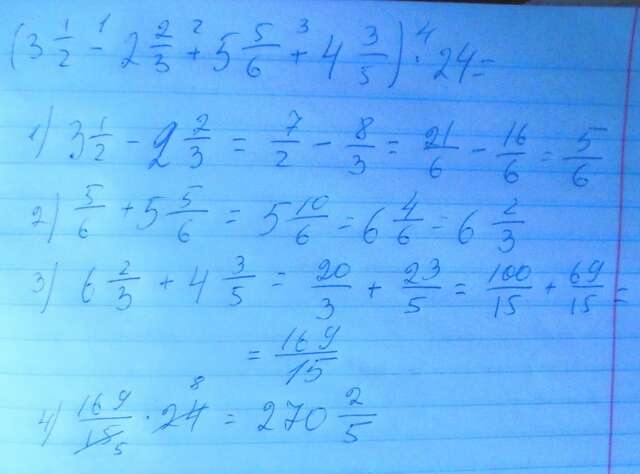 (3 1/2 - 2 2/3 + 5 5/6 + 4 3/5) · 24 =
1) 3 1/2 - 2 2/3 = 7/2 - 8/3 = 21/6 - 16/6 = 5/6
2) 5/6 + 5 5/6 = 5 10/6 = 6 4/6 = 6 2/3
3) 6 2/3 + 4 3/5 = 20/3 + 23/5 = 100/15 + 69/15 =
= 169/15
4) 169/15 5 · 24 8 = 270 2/5